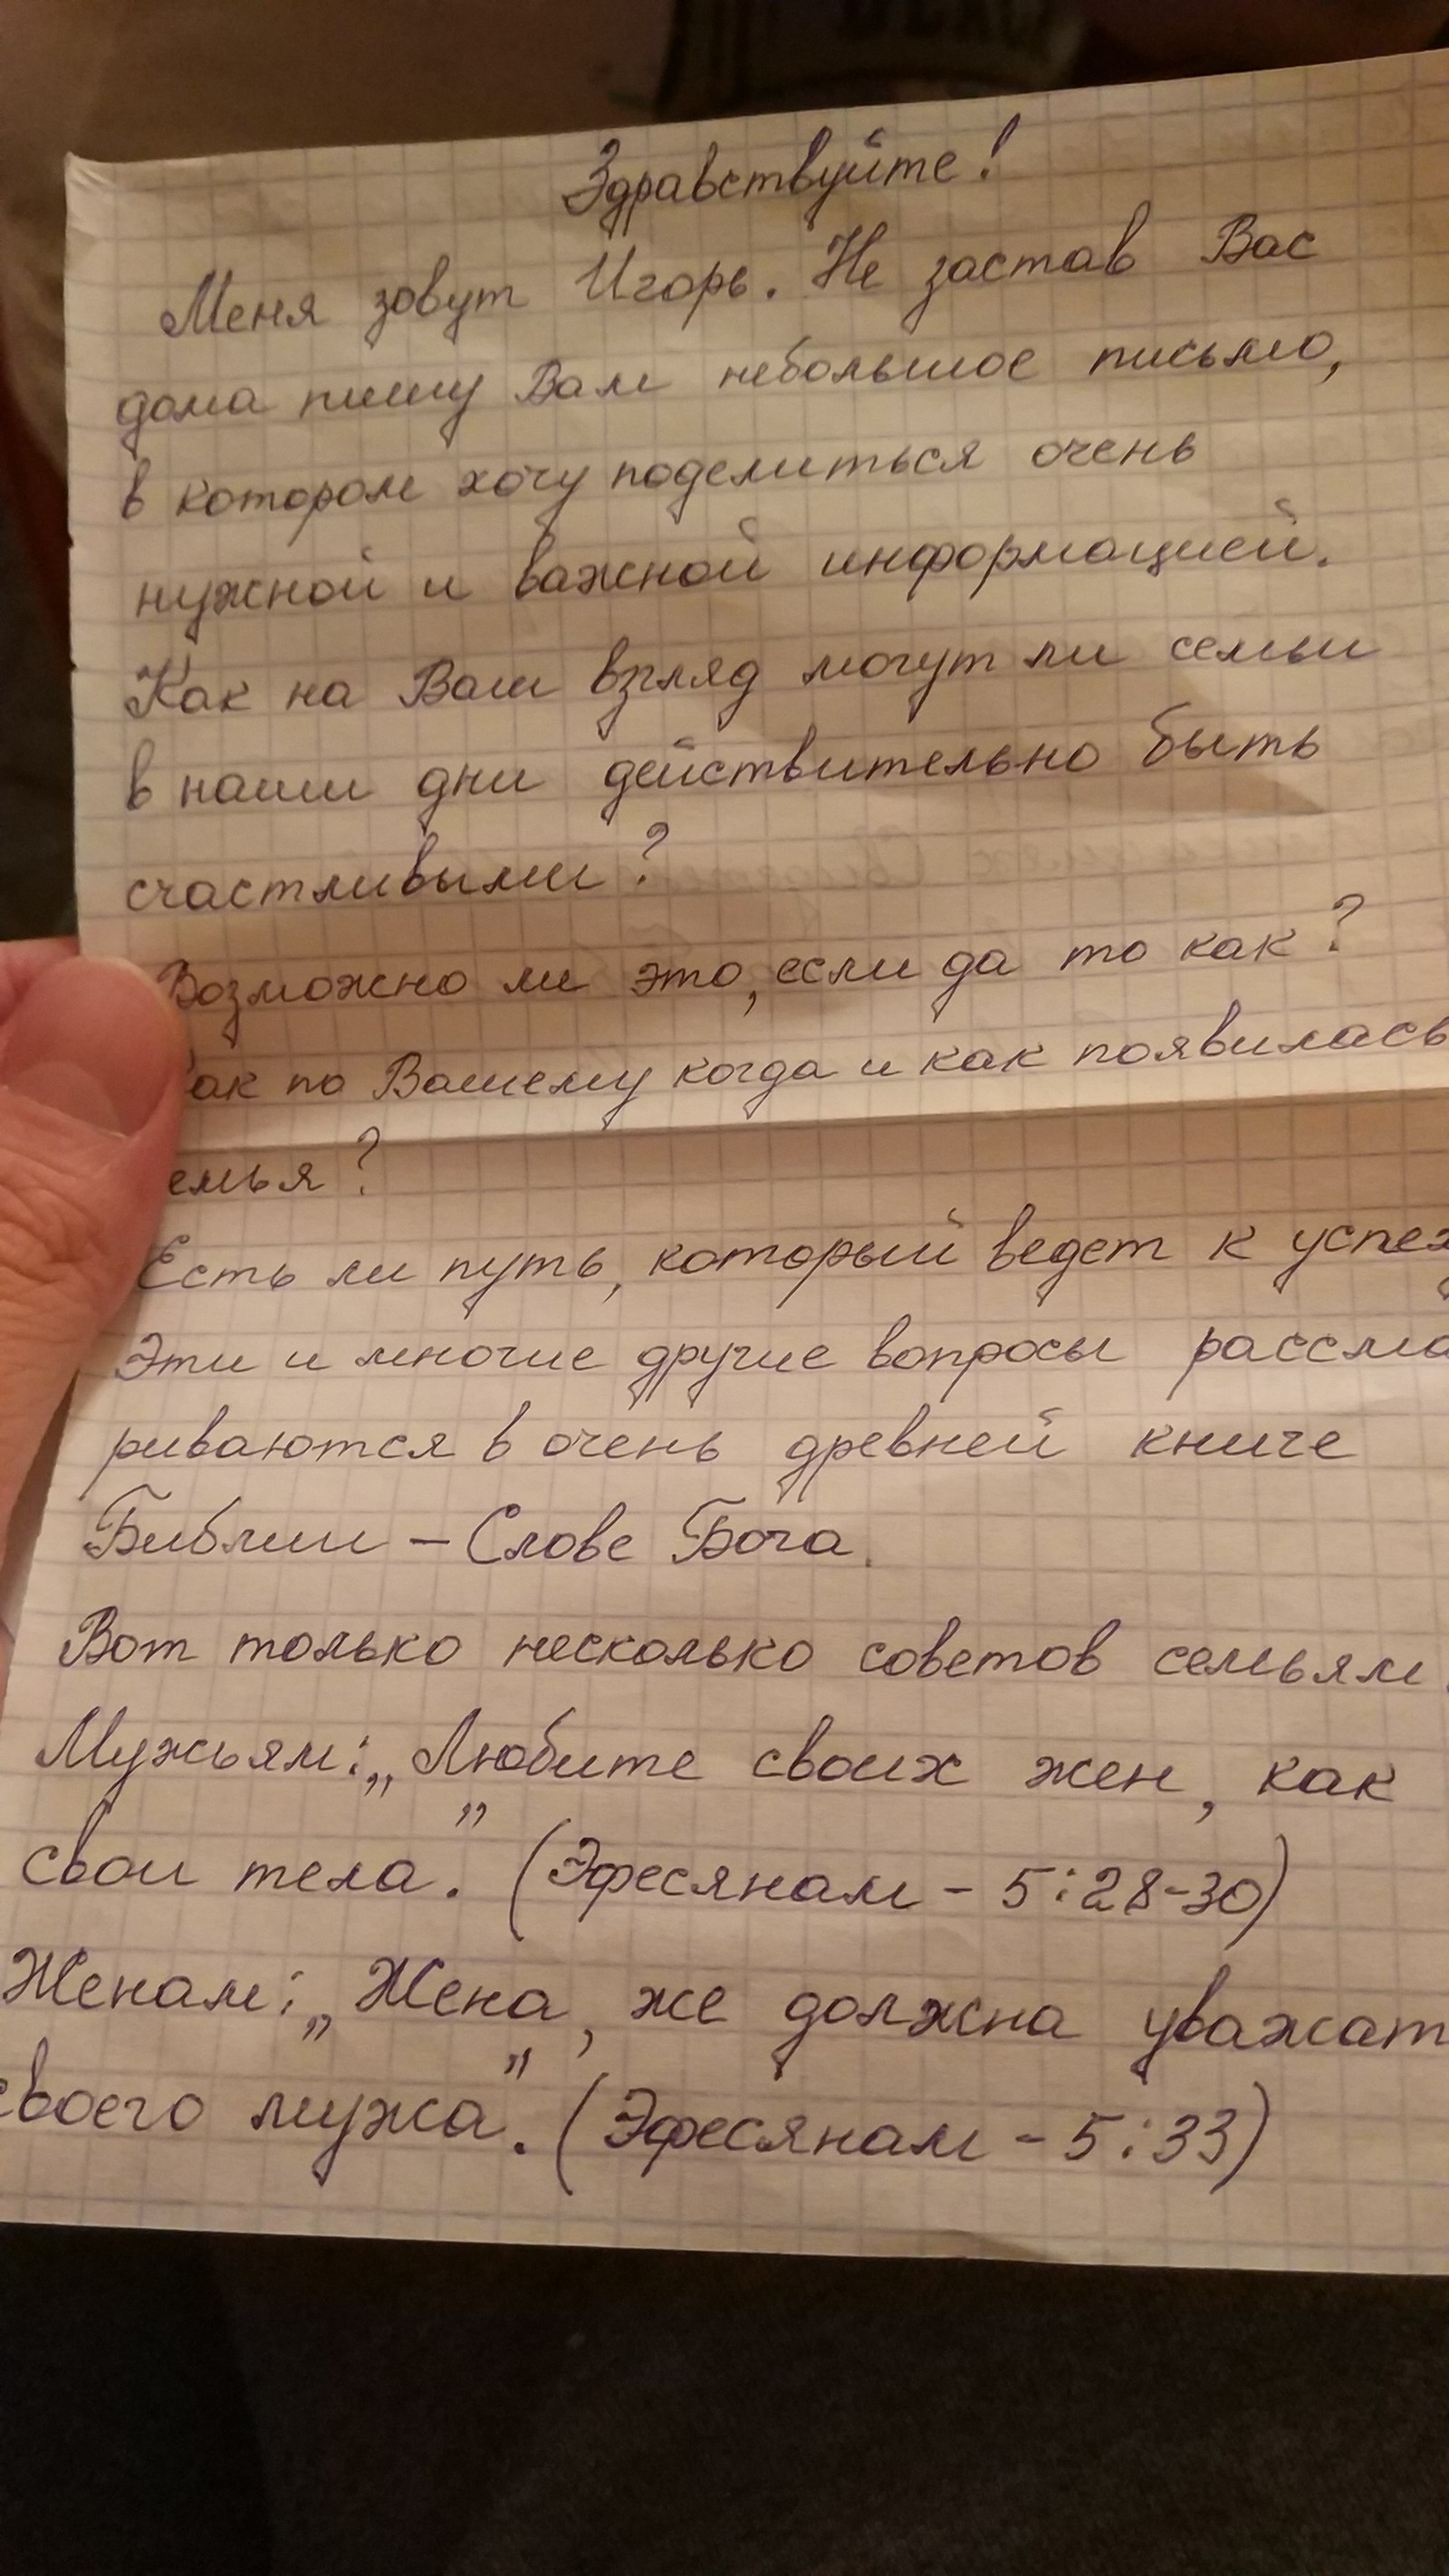 Здравствуйте!
Меня зовут Игорь. Не застав Вас
дома пишу Вам небольшое письмо,
в котором хочу поделиться очень
нужной и важной информацией.
Как на Ваш взгляд могут ли семьи
в наши дни действительно быть
счастливыми?
Возможно ли это, если да то как?
ак по Вашему когда и как появилась
емья?
Есть ли путь, который ведет к успех
Эти и многие другие вопросы рассма
риваются в очень древней книге
Библии – Слове Бога.
Вот только несколько советов семьям.
Мужьям: „Любите своих жен, как
свои тела.” (Эфесянам – 5:28-30)
Женам: „Жена, же должна уважат
своего мужа”. (Эфесянам – 5:33)